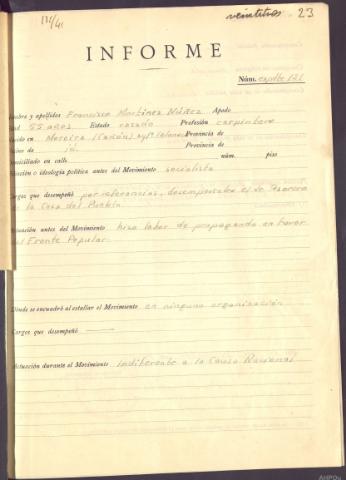 veintitres 23
INFORME
Núm. expdte 121
mbre y apellidos Francisco Martínez Núñez Apodo
ad 55 años Estado casado Profesión carpintero
Moreira Provincia de
cino de id. Provincia de
omiciliado en calle núm. piso
iliación o ideología política antes del Movimiento socialista
Cargos que desempeñó por referencias, desempeñaba el de Tesorero
de la Casa del Pueblo
tuación antes del Movimiento hizo labor de propaganda en favor
del Frente Popular
Dónde se encuadró al estallar el Movimiento en ninguna organización
Cargos que desempeñó
Actuación durante el Movimiento indiferente a la Causa Nacional
AHPOu